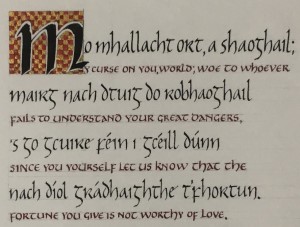 Mo mhallacht ort, a shaoghail;
My curse on you, world; woe to whoever
mairg nach dtuig do robhaoghail
fails to understand your great dangers,
's go gcuire féin i gcéill dúinn
since you yourself let us know that the
nach díol grádhaighthe t'fhortun.
fortune you give is not worthy of love.